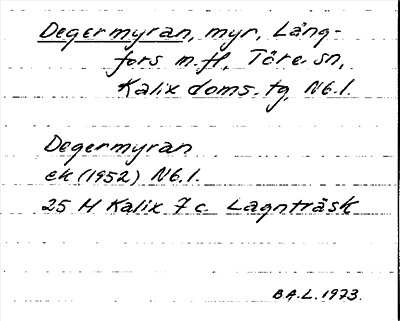 Degermyran, myr, Lång-
fors m.fl, Töre sn,
Kalix doms. tg, Nb.l.
Degermyran
ek (1952) Nb.l.
25 H Kalix 7 c Lagnträsk
B.A.L. 1973.